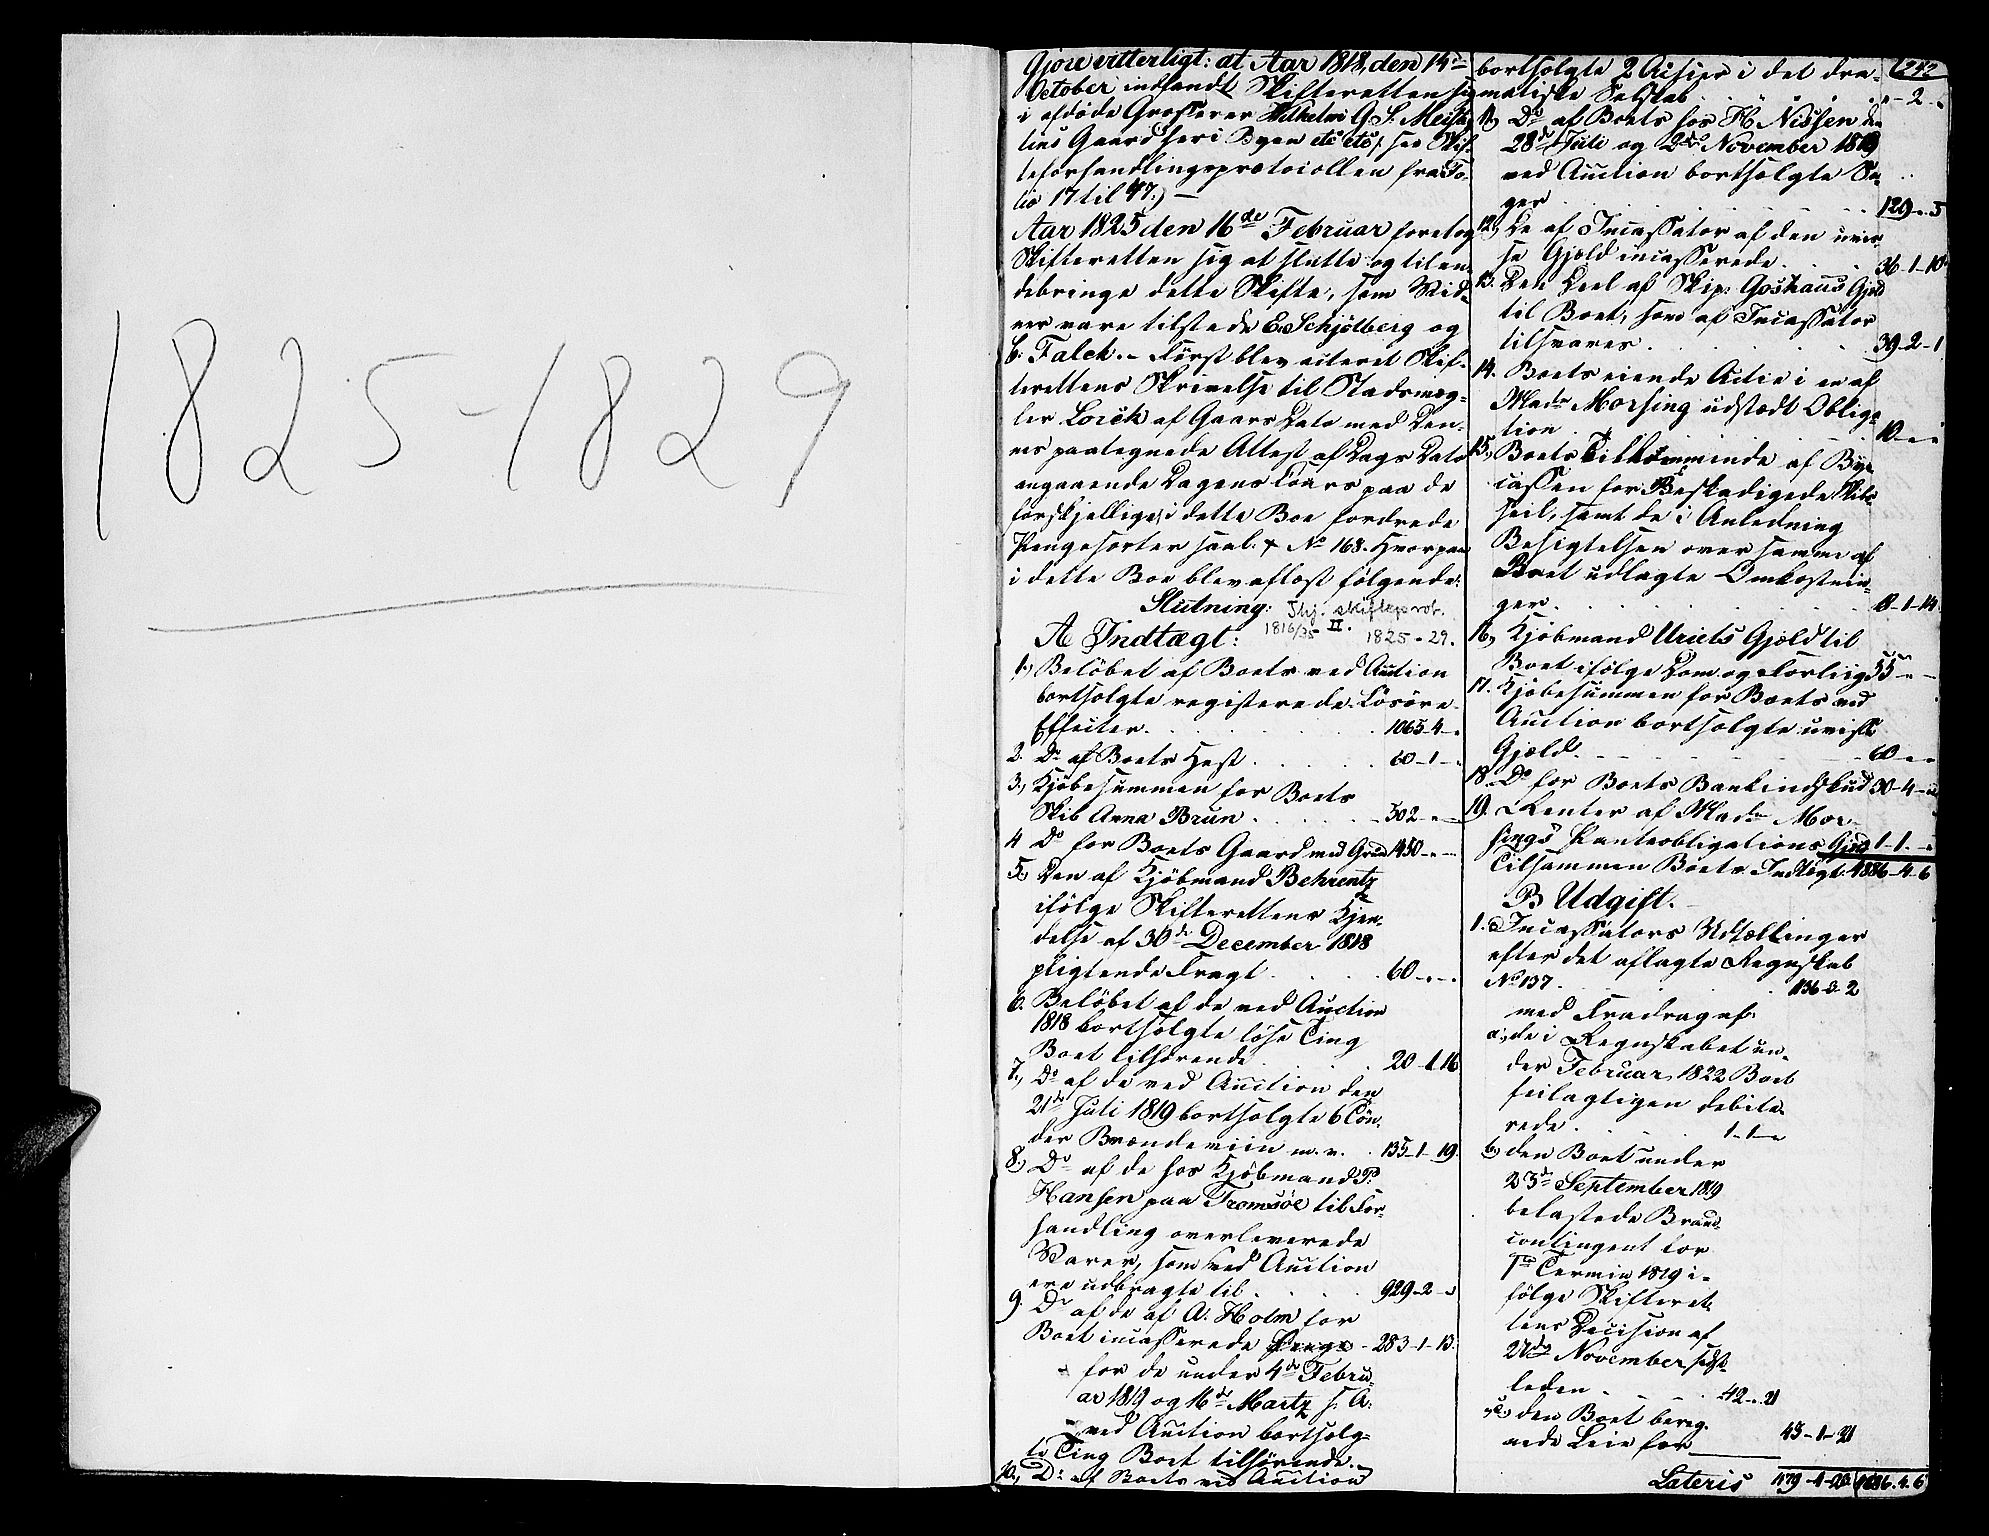 1825-1829
Gjøre vitterligt: at Aar 1818, den 14de
October indfandt Skifteretten sig
i afdøde Grosserer Wilhelm G. S.
tins Gaard her i Byen etc etc /: see Skif-
teforhandlingsprotocollen fra Fo-
lio 17 til 47:/ —
Aar 1825 den 16de Februar foretog
Skifteretten sig at slutte og tilen-
debringe dette Skifte, som Vid-
ner vare tilstede E. Schjølberg og
C. Falck. – Først blev citeret Skif-
terettens Skrivelse til Stadsmæg-
ler Lorck af Gaars Dato med Den-
nes paategnede Attest af Dags Dato
angaaende Dagens Cours paa de
forskjellige, i dette Boe fordrede
Pengesorter saal. No 168. Hvorpaa
i dette Boe blev aflæst følgende:
Slutning:
Thj. skifteprot.
1816/35 II. 1825-29.
A Indtægt:
1.) Beløbet af Boets ved Auction
bortsolgte registerede Løsøre-
Effecter . . . 1065-4-"
2. Do af Boets Hest . . . 60-1-"
3.) Kjøbesummen for Boets
Skib Anna Brun . . . 302-"-"
4 Do for Boets Gaard med Grund 1450-"-"
5.) Den af Kjøbmand Behrentz
ifølge Skifterettens Kjen-
delse af 30de December 1818
pligtende Fragt . . . 60-"-"
6. Beløbet af de ved Auction
1818 bortsolgte løse Ting
Boet tilhørende . . . 20-1-16
7.) Do af de ved Auction den
21de Juli 1819 bortsolgte 6 Tøn-
der Brændeviin m. v. . 135-1-19
8.) Do af de hos Kjøbmand P.
Hansen paa Tromsøe til For-
handling overleverede
Varer, som ved Auction
ere udbragte til . . . 929-2-"
9. Do af de af A. Holm for
Boet incasserede Penge - 283-1-13
for de under 4de Febru-
ar 1819 og 16de Martz s. A.
ved Auction bortsolg-
te Ting Boet tilhørende.
10.) Do af Boets ved Auction
242
bortsolgte 2 Actier i det dra-
matiske Selskab . . . "-2-"
11.) Do af Boets hos H. Nissen den
28de Juli og 2den November 1819
ved Auction bortsolgte Sa-
ger . . . 129-"-5
12.) De af Incassator af den uvis-
se Gjæld incasserede . . . 36-1-10
13. Den Deel af Skip: Goshaus Gjæld
til Boet, som af Incassator
tilsvares . . . 39-2-1
14. Boets eiende Actie i en af
Madm Morsing udstædt Obliga-
tion . . . 10-"-"
15.) Boets Tilkommende af Bye-
cassen for Beskadigede Skibs-
seil, samt de i Anledning
Besigtelsen over samme af
Boet udlagte Omkostnin-
ger . . . 8-1-14
16.) Kjøbmand Uriets Gjæld til
Boet ifølge Dom og Forliig 55-"-"
17. Kjøbesummen for Boets ved
Auction bortsolgte uvisse
Gjæld . . . 60-"-"
18. Do for Boets Bankindskud 30-4-"
19. Renter af Madm Mor-
sings Panteobligations Gjæld 1-1-"
Tilsammen Boets Indtægt 4886-4-6
B Udgift.
1. Incassators Udtællinger
efter det aflagte Regnskab
No 137 . . . 136-3-2
med Fradrag af:
a.) de i Regnskabet un-
der Februar 1822 Boet
feilagtigen debite-
rede . . . 1-1-"
b.) den Boet under
23de September 1819
belastede Brand-
contingent for
1ste Termin 1819 i-
følge Skifteret-
tens Decision af
22de November sidst-
leden . . . 42-"-21
c.) den Boet bereg-
nede Leie for
43-1-21
Lateris 479-4-20 4886.4.6